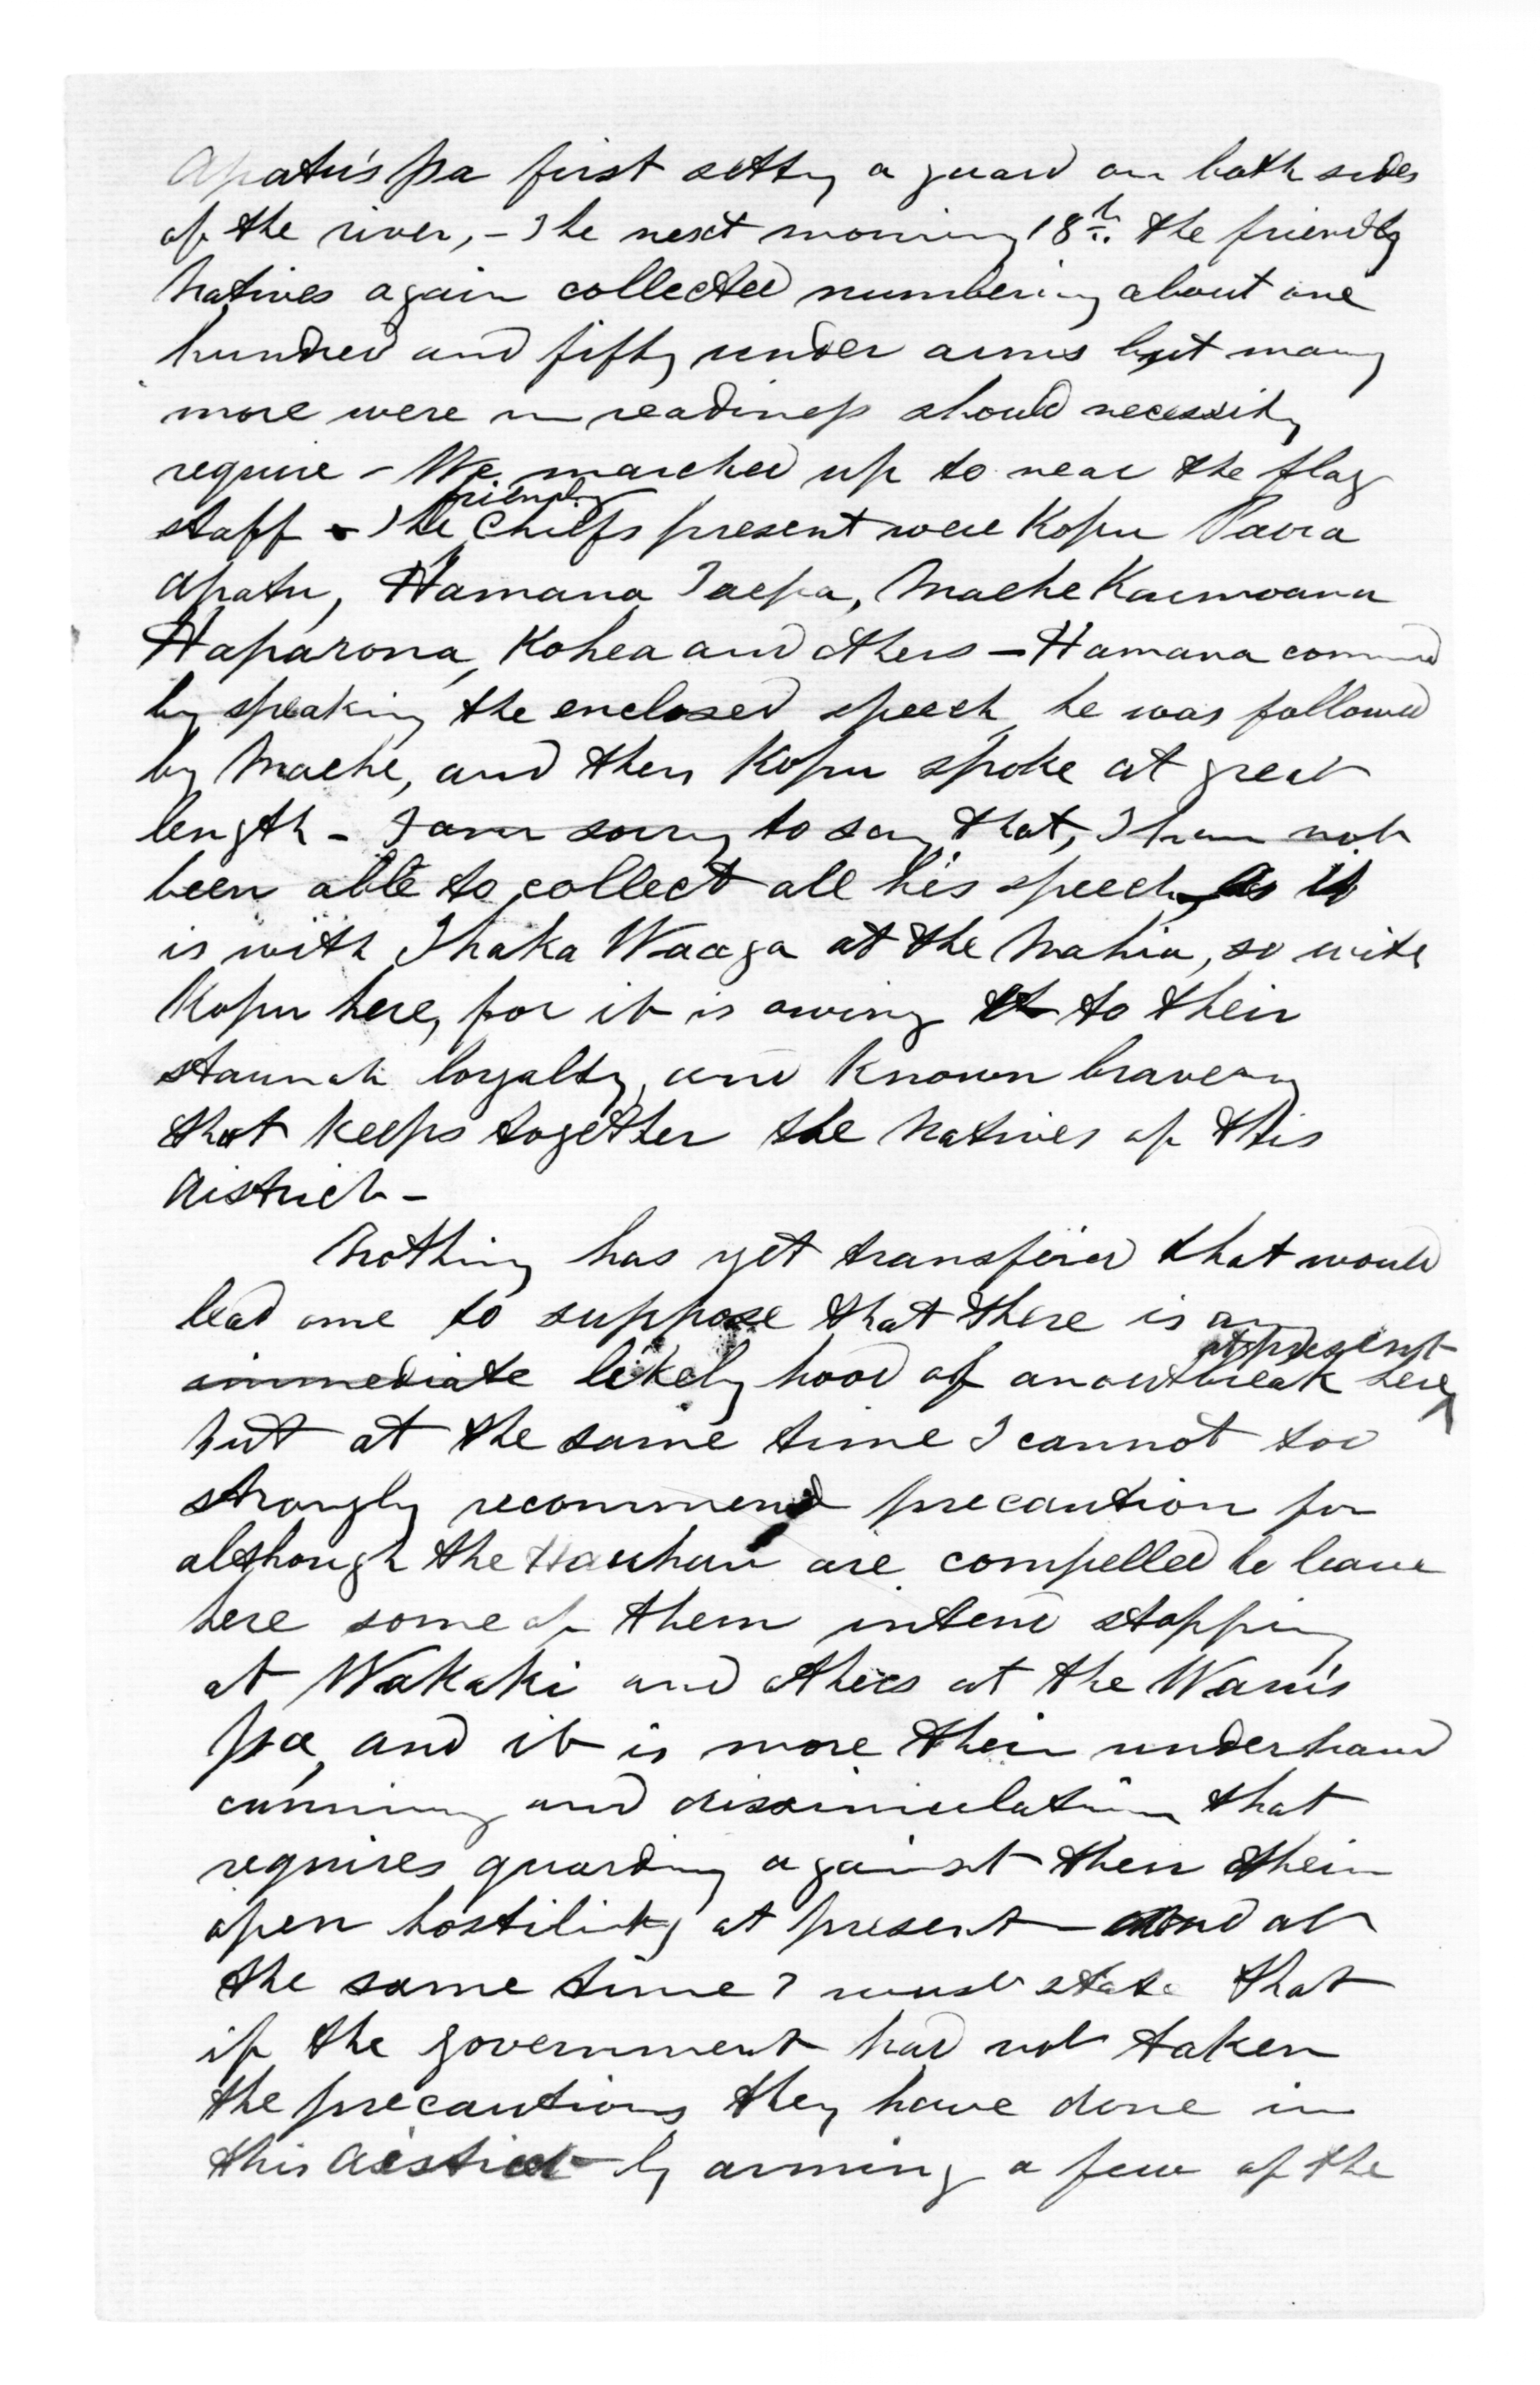 Apatu's pa first setting a guard on both sides
of the river, - The next morning 18th. the friendly
Natives again collected numbering about one
hundred and fifty under arms but many
more were in readiness should necessity
require - We marched up to near the flag
staff - The friendly Chiefs present were Kopu Paora
Apatu, Hamana Taepa, Maehe Kaimoana
Haparona, Kohea and others - Hamana commd
by speaking the enclosed speech, he was followed
by Maehe, and then Kopu spoke at great
length - I am sorry to say that, I have not
been able to collect all his speech, As it
is with Ihaka Waaga at the Mahia, so with
Kopu here, for it is owing to their
staunch loyalty, and known bravery
that keeps together the Natives of this
district -
Nothing has yet transpired that would
lead one to suppose that there is any
immediate likely hood of an outbreak here at present
but at the same time I cannot too
strongly recommend precaution for
although the Hauhau are compelled to leave
here some of them intend stopping
at Wakaki and others at the Waru's
pa, and it is more their underhand
cunning and dissimulation that
requires guarding against then their
open hostility at present - and at
the same time I must state that
if the government had not taken
the precautions they have done in
this district by arming a few of the